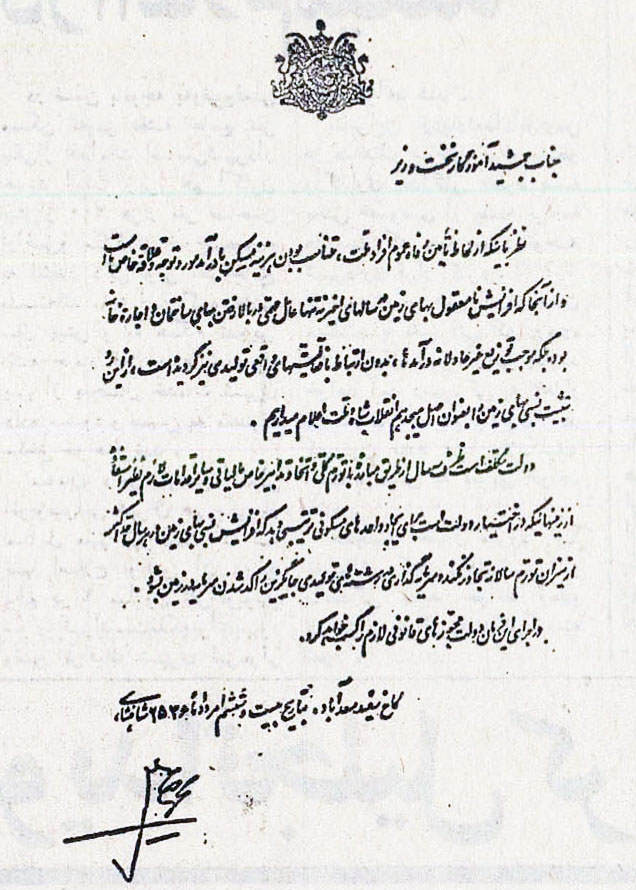 جناب جمشید آموزگار نخست وزیر
نظر باینکه از لحاظ تأمین رفاه عموم افراد ملت، متناسب بودن هزینه مسکن با درآمد مورد توجه و علاقه خاص ما است
و از آنجا که افزایش نامعقول بهای زمین در سالهای اخیر نه تنها عامل مهمی در بالا رفتن بهای ساختمان و اجاره خانه
بوده بلکه موجب توزیع غیر عادلانه درآمدها، بدون ارتباط با فعالیتهای واقعی تولیدی نیز گردیده است، از این رو
تثبیت نسبی بهای زمین را بعنوان اصل هیجدهم انقلاب شاه و ملت اعلام میداریم.
دولت مکلف است ظرف امسال از طریق مبارزه با تورم کلی و اتخاذ تدابیر خاص مالیاتی و سایر اقدامات لازم نظیر استفاده
از زمینهائیکه در اختیار دولت است برای ایجاد واحدهای مسکونی ترتیبی بدهد که افزایش نسبی بهای زمین در هر سال حداکثر
از میزان تورم سالانه تجاوز نکند و سرمایه گذاری در رشته های تولیدی جایگزین راکد شدن سرمایه در زمین بشود.
در اجرای این فرمان دولت مجوزهای قانونی لازم را کسب خواهد کرد.
کاخ سفید سعدآباد، بتاریخ بیست و ششم امرداد ماه ۲۵۳۶ شاهنشاهی